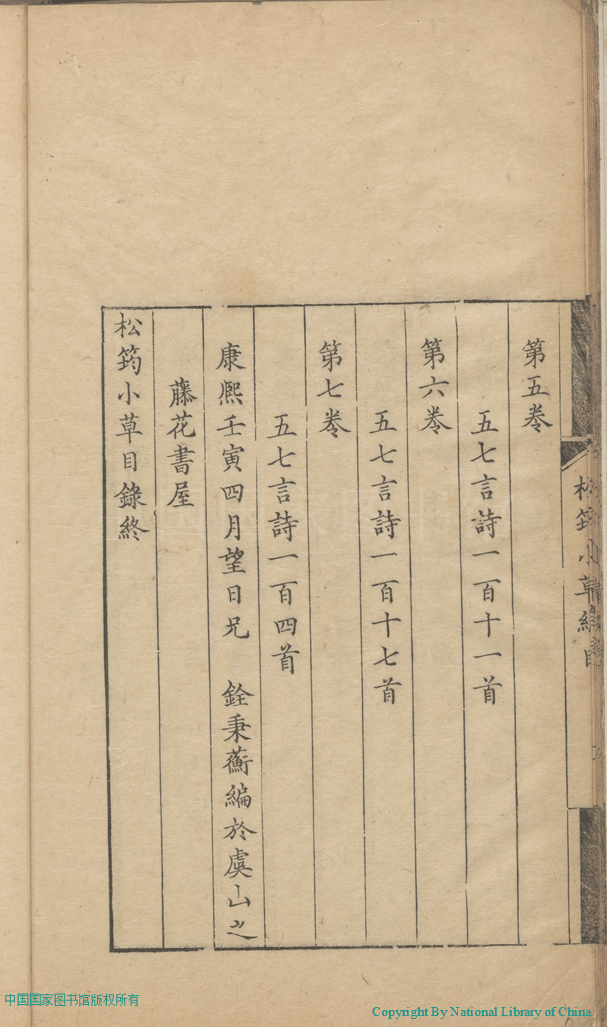 第五卷
五七言詩一百十一首
第六卷
五七言詩一百十七首
第七卷
五七言詩一百四首
康熈壬寅四月望日兄　銓秉蘅編於虞山之
藤花書屋
松筠小草目錄終
松筠小草總目
中国国家图书馆版权所有
Copyright By National Library of China